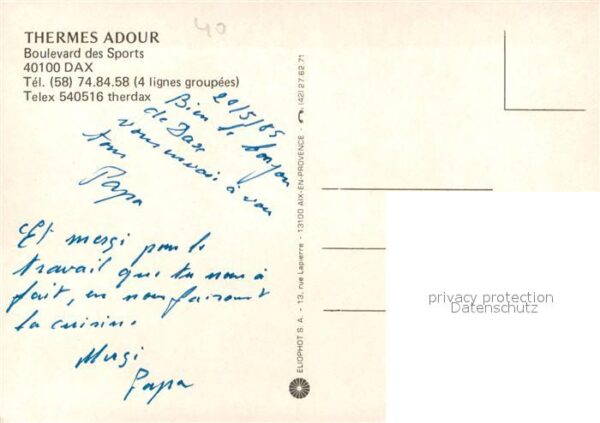 40
THERMES ADOUR
Boulevard des Sports
40100 DAX
Tél. (58) 74.84.58 (4 lignes groupées)
Telex 540516 therdax
20/5/85
Bien le bonjou
de Dax
vous envois à vou
tous
Papa
Et mersi pour le
travail que tu nous à
fait, en nous faisant
la cuisine
Mersi
Papa
ELIOPHOT S. A. - 13, rue Lapierre - 13100 AIX-EN-PROVENCE - (42) 27.62.71
privacy protection
Datenschutz